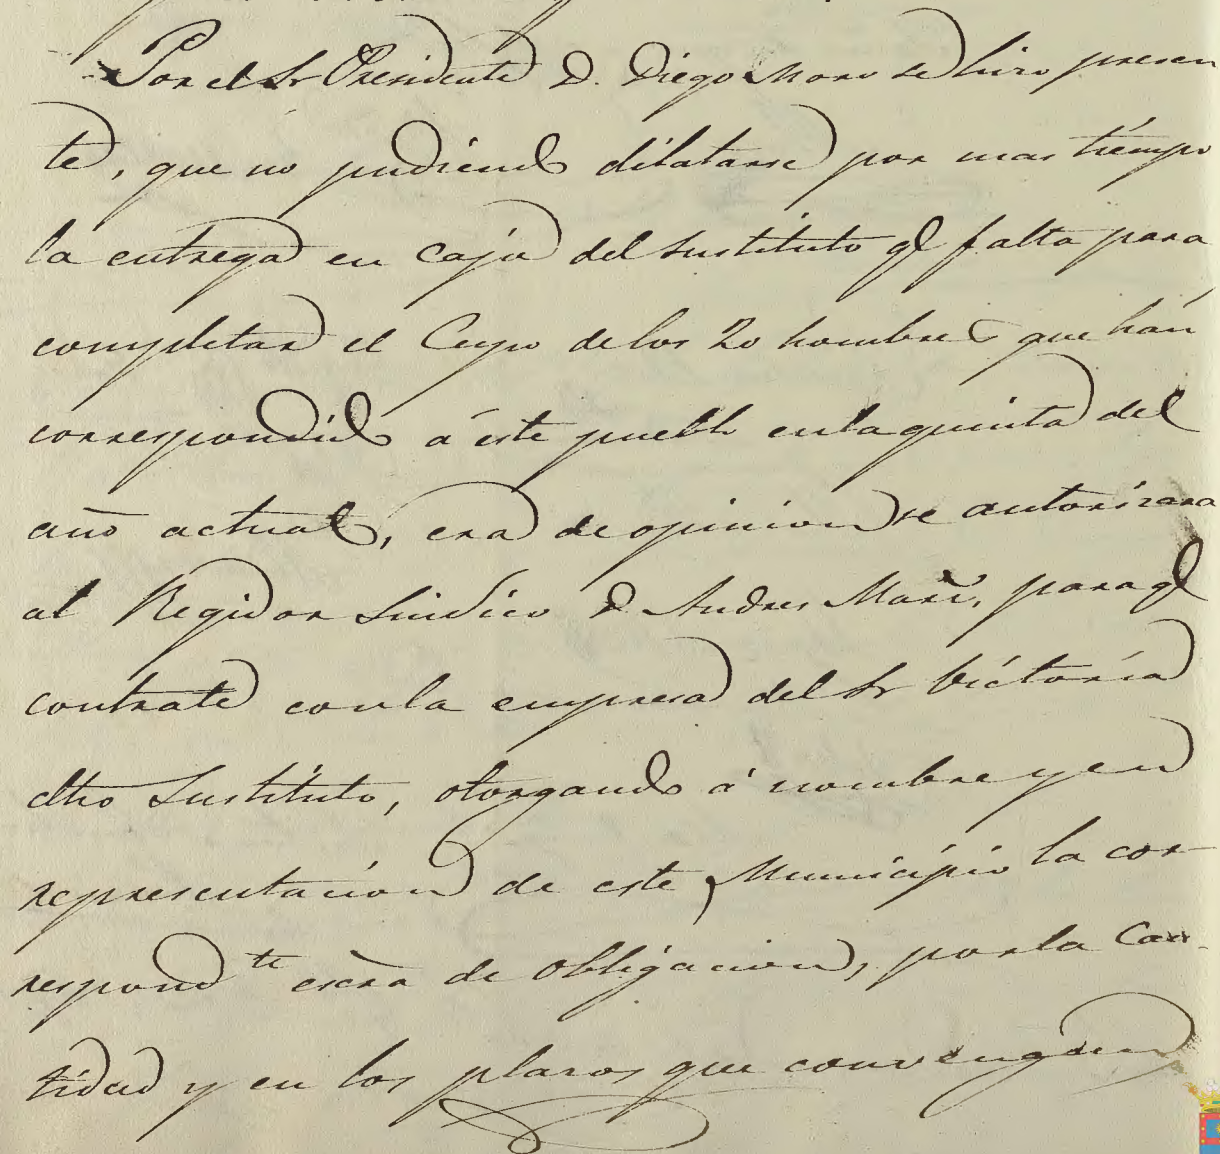 Por el Sr Presidente D. Diego Moro se hizo presen
te, que no pudiendo dilatarse por mas tiempo
la entrega en caja del sustituto q̃ falta para
completar el Cupo de los 20 hombres que han
correspondido á este pueblo en la quinta del
año actual, era de opinion se autorizara
al Regidor Sindico D. Andres Mari, para q̃
contrate con la empresa del Sr Victoria
dho Sustituto, otorgando á nombre y en
representacion de este Municipio la cor-
respond.te escra de obligacion, por la Can-
tidad y en los plazos que convengan